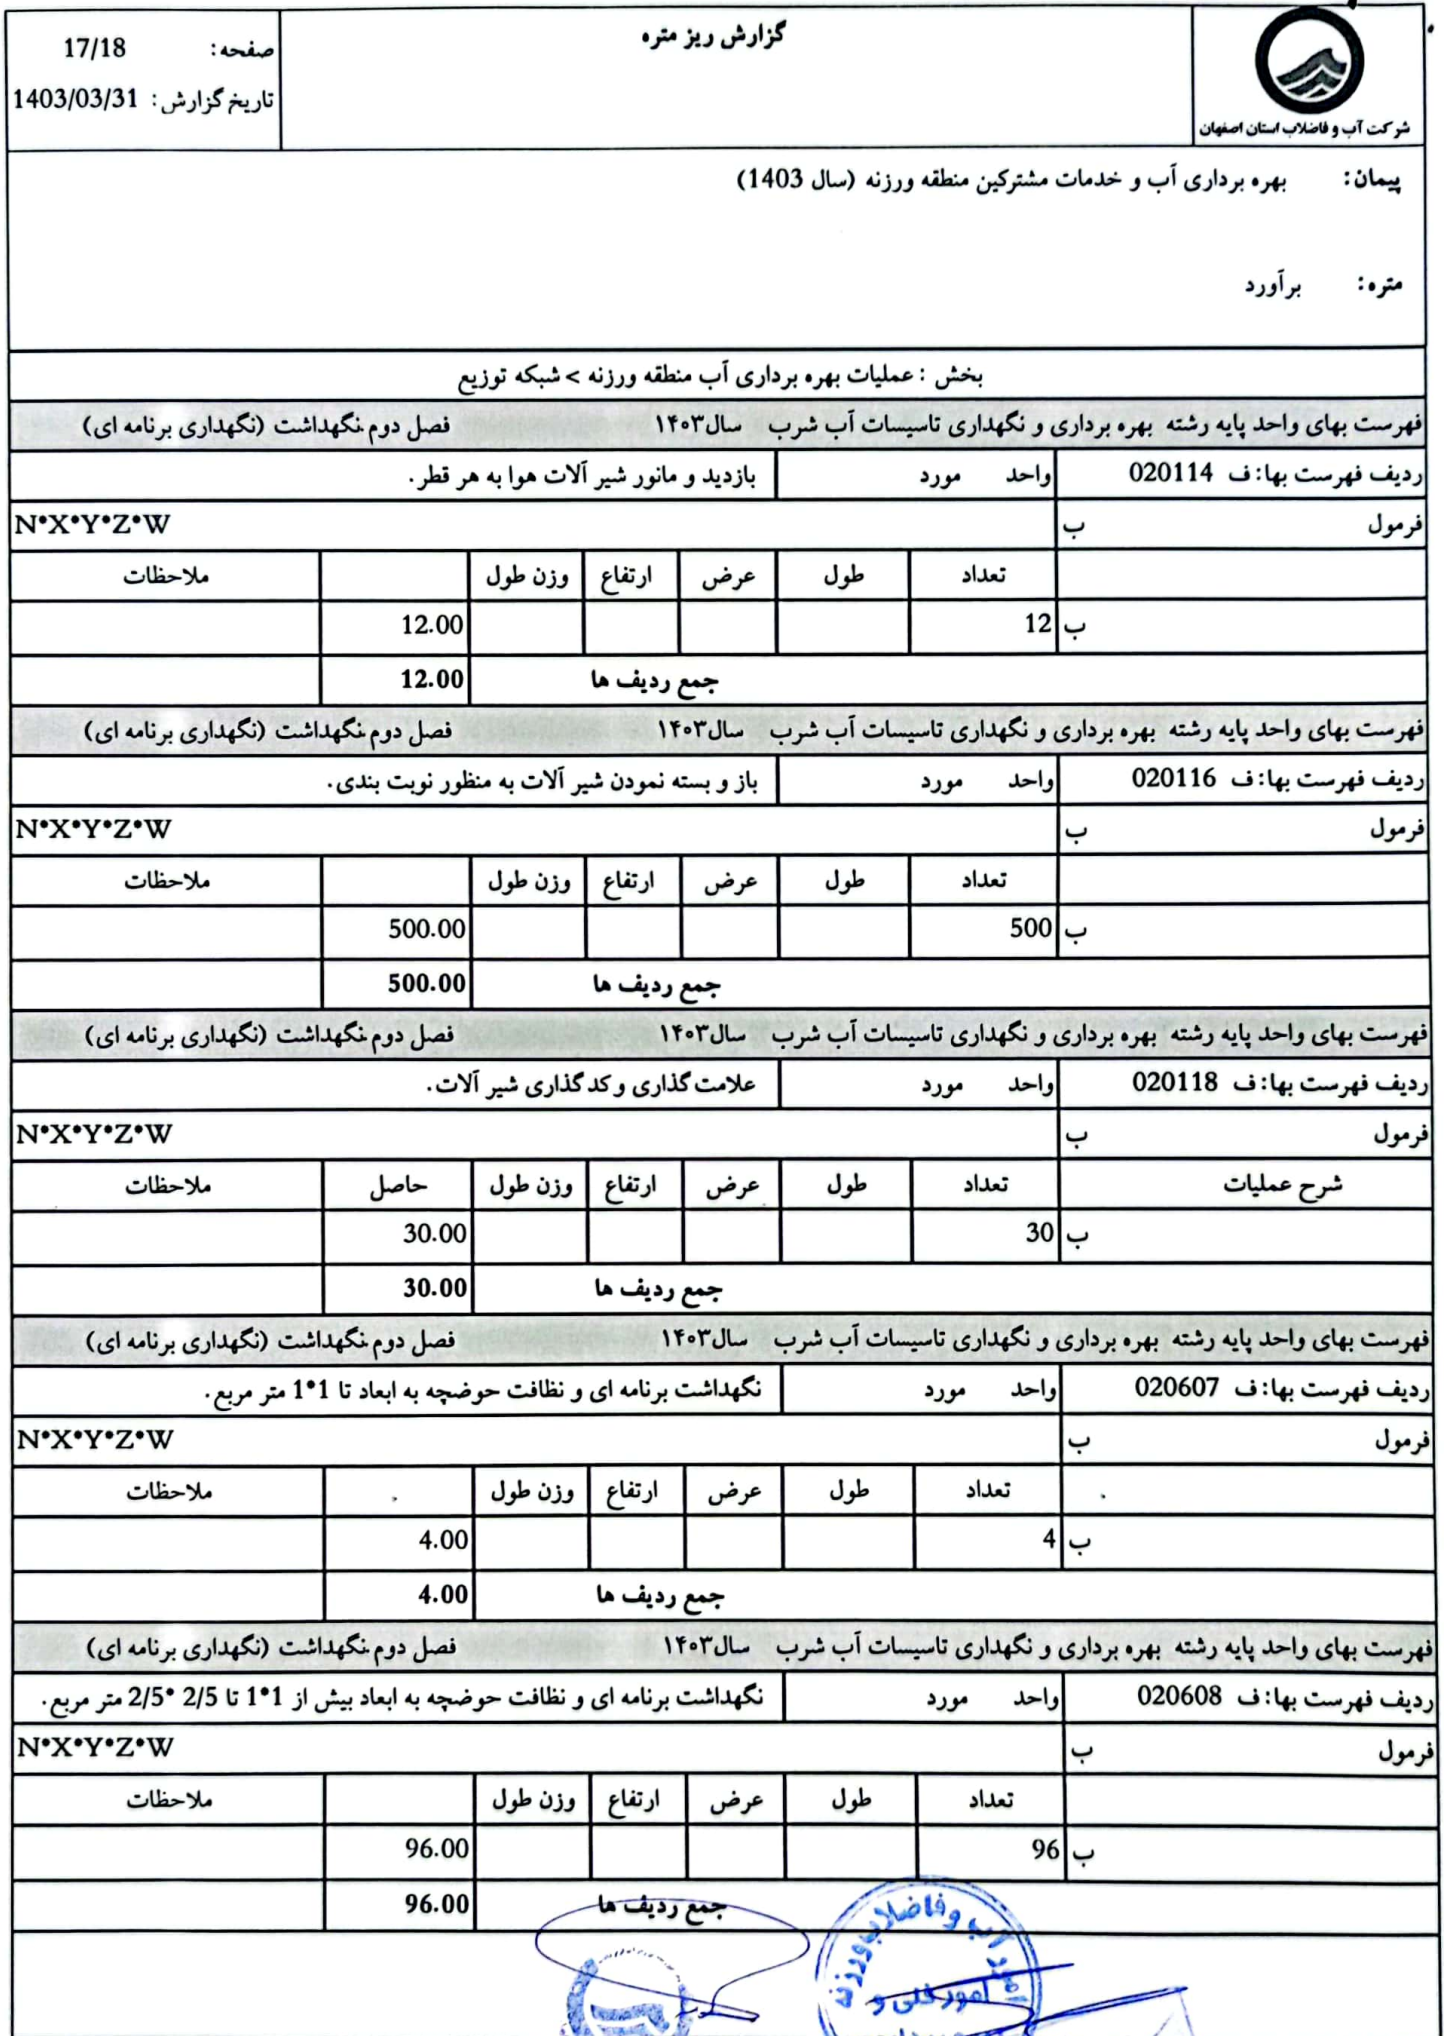 گزارش ریز متره
صفحه: 17/18
تاریخ گزارش: 1403/03/31
شرکت آب و فاضلاب استان اصفهان
پیمان: بهره برداری آب و خدمات مشترکین منطقه ورزنه (سال 1403)
متره: برآورد
بخش : عملیات بهره برداری آب منطقه ورزنه > شبکه توزیع
فهرست بهای واحد پایه رشته بهره برداری و نگهداری تاسیسات آب شرب سال۱۴۰۳ فصل دوم.نگهداشت (نگهداری برنامه ای)
ردیف فهرست بها: ف 020114 واحد مورد بازدید و مانور شیر آلات هوا به هر قطر.
فرمول ب N*X*Y*Z*W
تعداد طول عرض ارتفاع وزن طول ملاحظات
ب 12 12.00
جمع ردیف ها 12.00
فهرست بهای واحد پایه رشته بهره برداری و نگهداری تاسیسات آب شرب سال۱۴۰۳ فصل دوم.نگهداشت (نگهداری برنامه ای)
ردیف فهرست بها: ف 020116 واحد مورد باز و بسته نمودن شیر آلات به منظور نوبت بندی.
فرمول ب N*X*Y*Z*W
تعداد طول عرض ارتفاع وزن طول ملاحظات
ب 500 500.00
جمع ردیف ها 500.00
فهرست بهای واحد پایه رشته بهره برداری و نگهداری تاسیسات آب شرب سال۱۴۰۳ فصل دوم.نگهداشت (نگهداری برنامه ای)
ردیف فهرست بها: ف 020118 واحد مورد علامت گذاری و کد گذاری شیر آلات.
فرمول ب N*X*Y*Z*W
شرح عملیات تعداد طول عرض ارتفاع وزن طول حاصل ملاحظات
ب 30 30.00
جمع ردیف ها 30.00
فهرست بهای واحد پایه رشته بهره برداری و نگهداری تاسیسات آب شرب سال۱۴۰۳ فصل دوم.نگهداشت (نگهداری برنامه ای)
ردیف فهرست بها: ف 020607 واحد مورد نگهداشت برنامه ای و نظافت حوضچه به ابعاد تا 1*1 متر مربع.
فرمول ب N*X*Y*Z*W
تعداد طول عرض ارتفاع وزن طول ملاحظات
ب 4 4.00
جمع ردیف ها 4.00
فهرست بهای واحد پایه رشته بهره برداری و نگهداری تاسیسات آب شرب سال۱۴۰۳ فصل دوم.نگهداشت (نگهداری برنامه ای)
ردیف فهرست بها: ف 020608 واحد مورد نگهداشت برنامه ای و نظافت حوضچه به ابعاد بیش از 1*1 تا 2/5 *2/5 متر مربع.
فرمول ب N*X*Y*Z*W
تعداد طول عرض ارتفاع وزن طول ملاحظات
ب 96 96.00
جمع ردیف ها 96.00
امور آب و فاضلاب ورزنه
امور فنی و